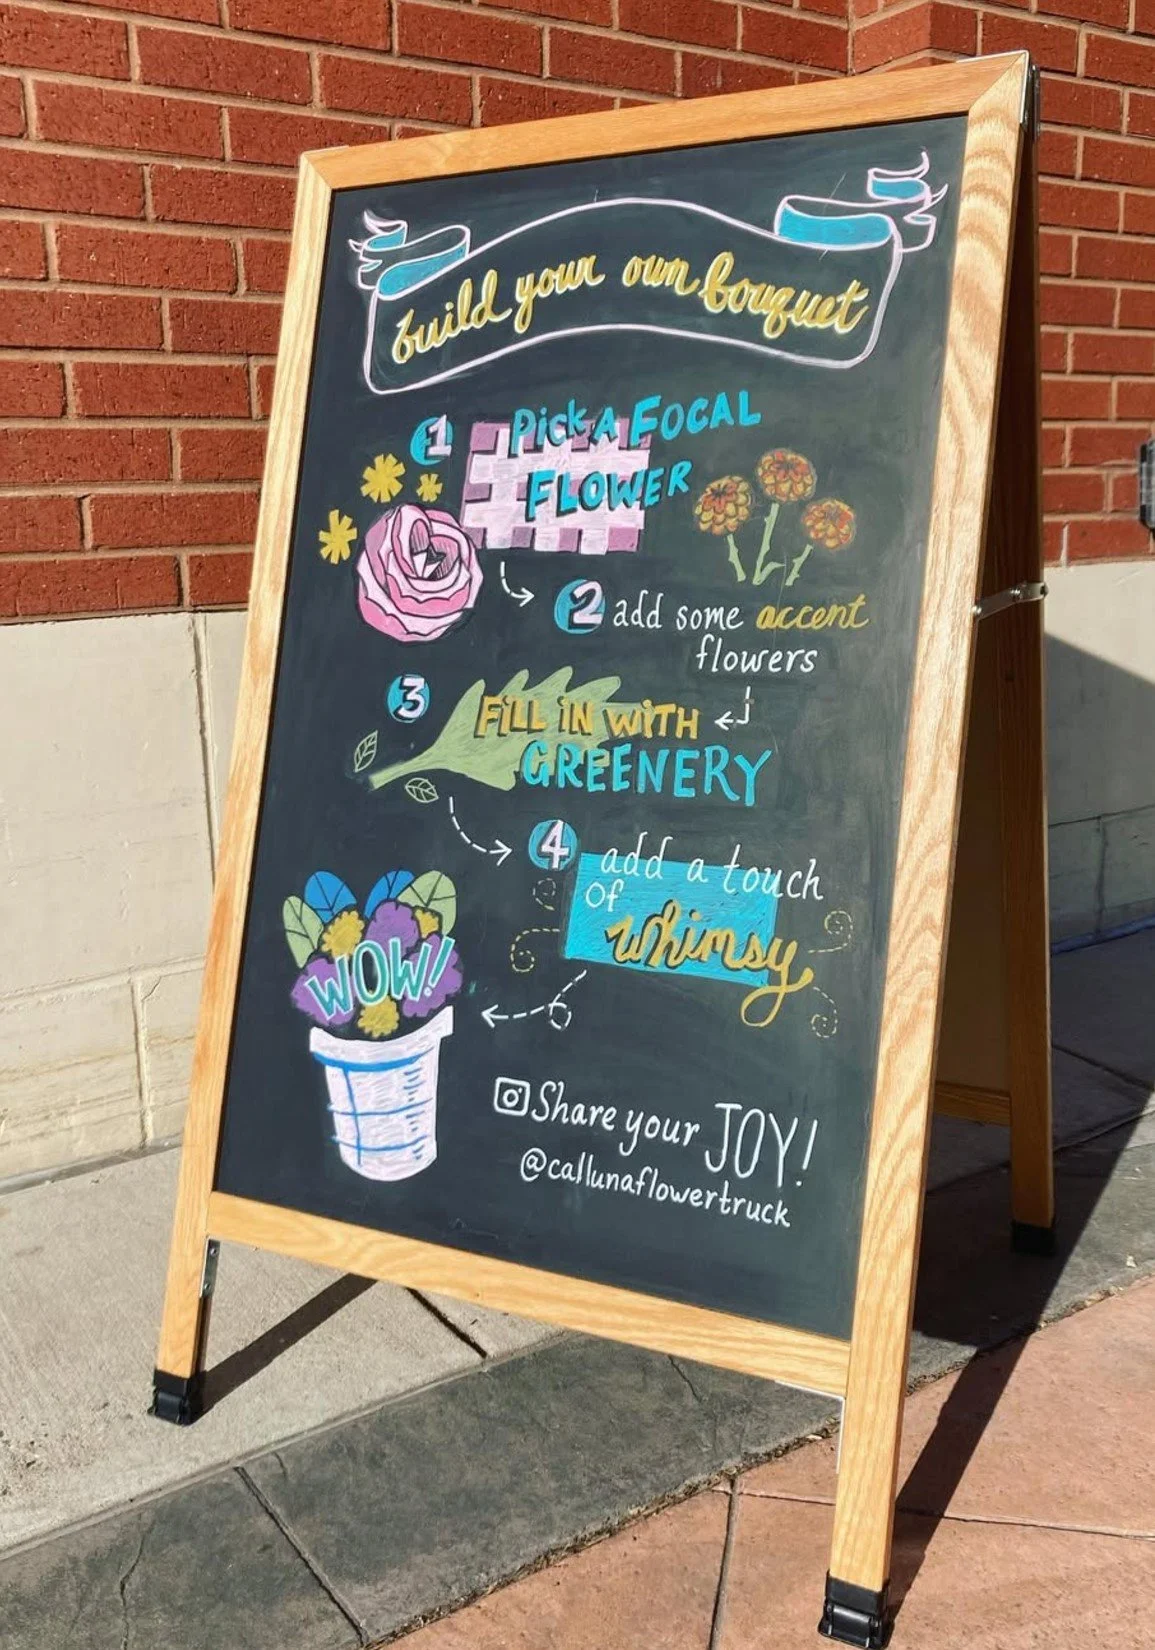 build your own bouquet
1 Pick A FOCAL
FLOWER
2 add some accent
flowers
3 FiLL iN WiTH
GREENERY
4 add a touch
of
whimsy
WOW!
Share your JOY!
@callunaflowertruck